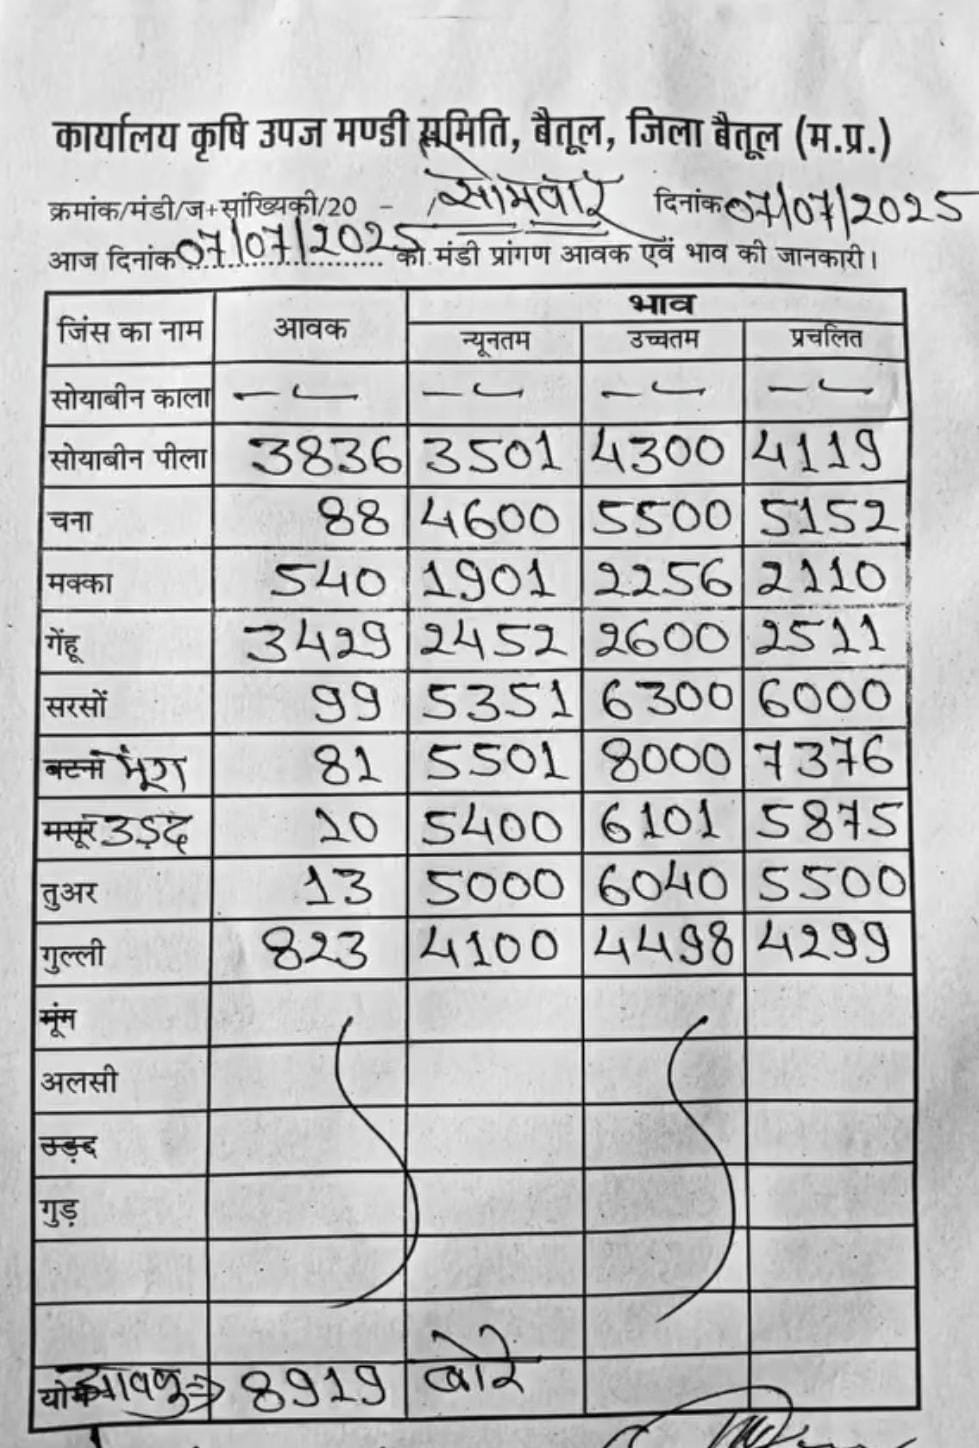 कार्यालय कृषि उपज मण्डी समिति, बैतूल, जिला बैतूल (म.प्र.)
क्रमांक/मंडी/ज+सांख्यिकी/20 - सोमवार दिनांक 07/07/2025
आज दिनांक 07/07/2025 को मंडी प्रांगण आवक एवं भाव की जानकारी।
जिंस का नाम आवक भाव
न्यूनतम उच्चतम प्रचलित
सोयाबीन काला — — — —
सोयाबीन पीला 3836 3501 4300 4119
चना 88 4600 5500 5152
मक्का 540 1901 2256 2110
गेंहू 3429 2452 2600 2511
सरसों 99 5351 6300 6000
बटना मूंग 81 5501 8000 7376
मसूर उड़द 10 5400 6101 5875
तुअर 13 5000 6040 5500
गुल्ली 823 4100 4498 4299
मूंग
अलसी
उड़द
गुड़
8919 बोरे